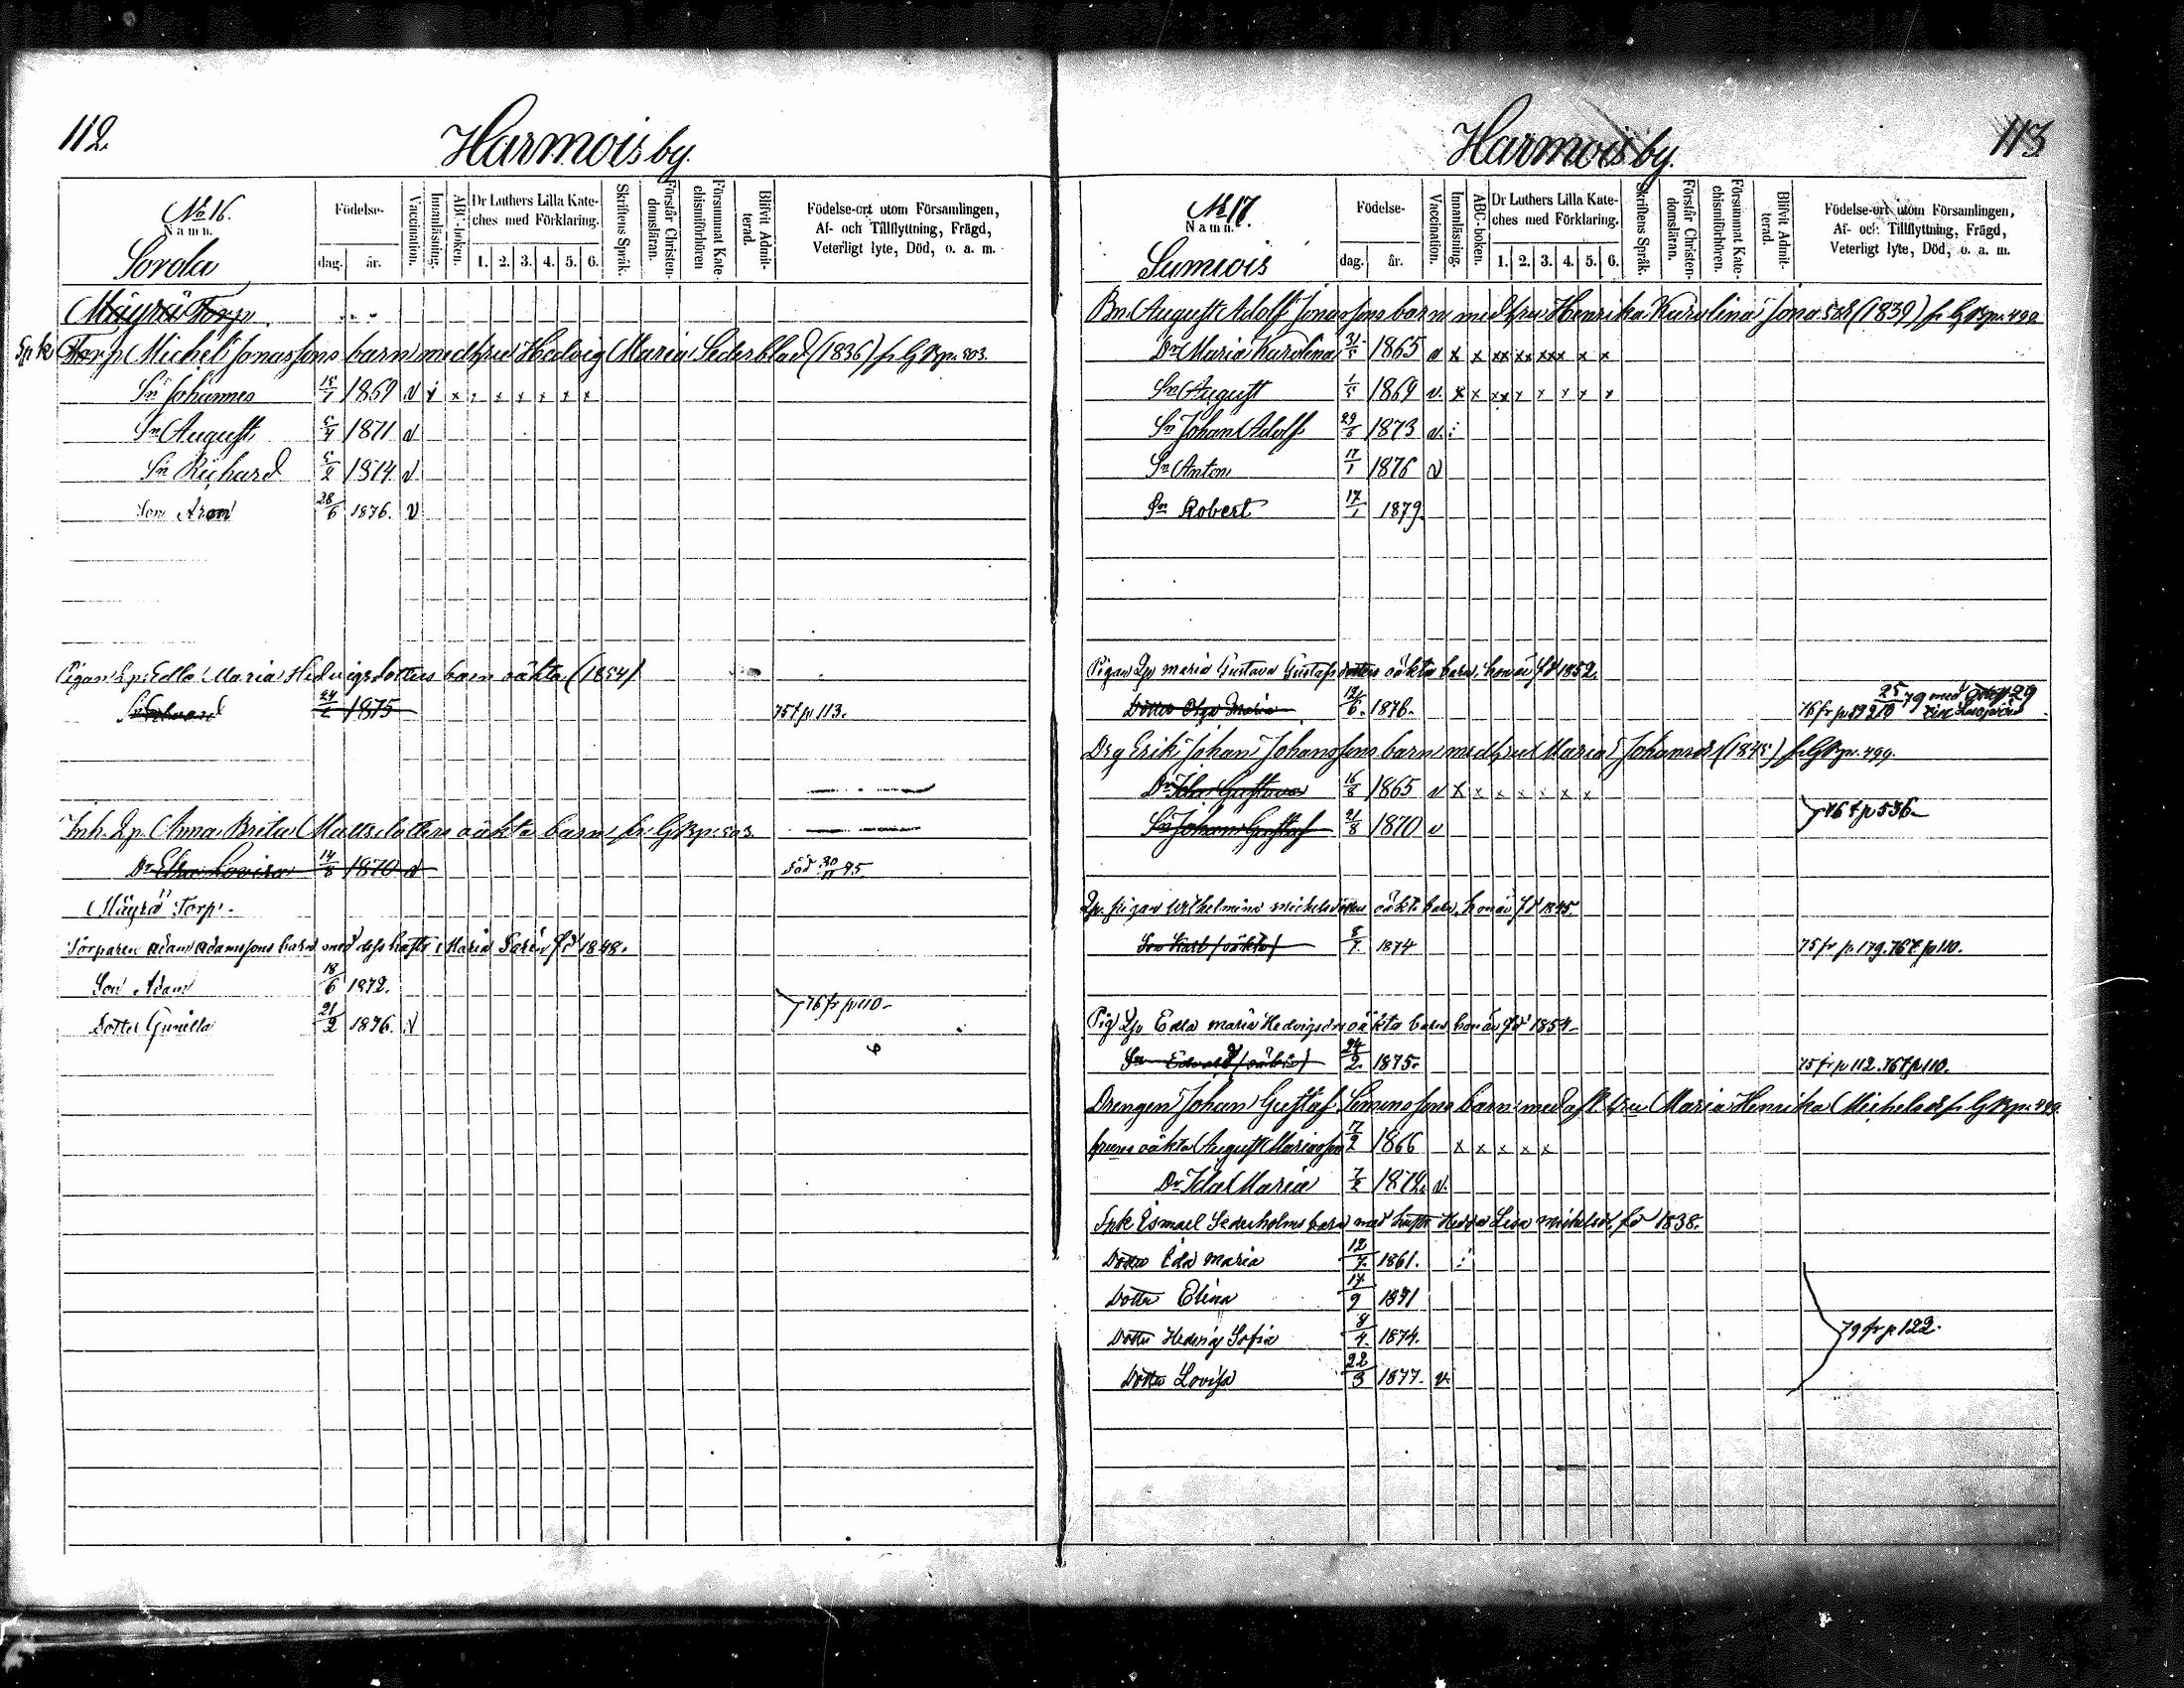 112.
Harmois by.
No 16.
Namn.
Sorola
Födelse-
dag.
år.
Vaccination.
Innanläsning.
ABC-boken.
Dr Luthers Lilla Kate-
ches med Förklaring.
1. 2. 3. 4. 5. 6.
Skriftens Språk.
Förstår Christen-
domsläran.
Försummat Kate-
chismiförhören
Blifvit Admit-
terad.
Födelse-ort utom Församlingen,
Af- och Tillflyttning, Frägd,
Veterligt lyte, Död, o. a. m.
Mäyrä Torp.
Spk Torp Michel Jonassons barn med hru Hedvig Maria Sederblad (1836) fr GBp. 503.
Sn Johannes 15/1 1869 v x x x x x x x x
Sn August 5/4 1871 v
Sn Richard 5/2 1874 v
Son Aron 28/6 1876. v
Pigan Lp. Edla Maria Hedvigsdotters barn oäkta (1854)
Sn Edvard 24/2 1875 75 t p 113.
Inh. Lp. Anna Brita Mattsdotters oäkta barn fr. GBp. 503.
Dr Edla Lovisa 14/8 1870 v död 30/11 75.
Mäyrä Torp.
Torparen Adam Adamssons barn med dess hustr: Maria Serén fd 1848.
Son Adam 18/6 1872.
76 fr p 110
Dotter Gunilla 21/2 1876. v
113
Harmois by.
No 17.
Namn.
Sumiois
Födelse-
dag.
år.
Vaccination.
Innanläsning.
ABC-boken.
Dr Luthers Lilla Kate-
ches med Förklaring.
1. 2. 3. 4. 5. 6.
Skriftens Språk.
Förstår Christen-
domsläran.
Försummat Kate-
chismiförhören.
Blifvit Admit-
terad.
Födelse-ort utom Församlingen,
Af- och Tillflyttning, Frägd,
Veterligt lyte, Död, o. a. m.
Bn August Adolf Jonassons barn med hru Henrika Karolina Jonasdr (1839) fr GBp. 499
Dr Maria Karolina 31/5 1865 v x x xx xx xxx x x
Sn August 1/5 1869 v. x x xx x x x x x
Sn Johan Adolf 29/6 1873 v.
Sn Anton 17/1 1876 v
Sn Robert 17/1 1879.
Pigan Lp Maria Gustava Gustafsdotters oäkta barn, hon är fd 1852.
Dotter Olga Maria 12/6. 1876.
Drg Erik Johan Johanssons barn med hru Maria Johansdr (1845) fr GBp. 499.
Dr Ida Gustava 16/8 1865 v x x x x x x x
Sn Johan Gustaf 21/8 1870 v
76 t p 536
Lp. pigan Wilhelmina Michelsdotters oäkta barn, hon är fd 1845.
Son Karl (oäkta) 8/7. 1874 75 fr p. 179. 76 t p 110.
Pig Lp Edla Maria Hedvigsdrs oäkta barn hon är fd 1854
Sn Edvard (oäkta) 24/2. 1875. 75 fr p 112. 76 t p 110.
Drengen Johan Gustaf Simonssons barn med afl. hru Maria Henrika Michelsdr fr GBp. 499.
hruns oäkta August Mariasson 17/2 1866 x x x x x
Dr Ida Maria 7/2 1872. v.
Spk Esmael Sederholms barn med hustr Hedda Lisa Michelsdr, fd 1838.
Dotter Eda Maria 12/7. 1861.
Dotter Elina 17/9 1871
Dotter Hedvig Sofia 8/4. 1874.
79 fr p 122.
Dotter Lovisa 22/3 1877. v.